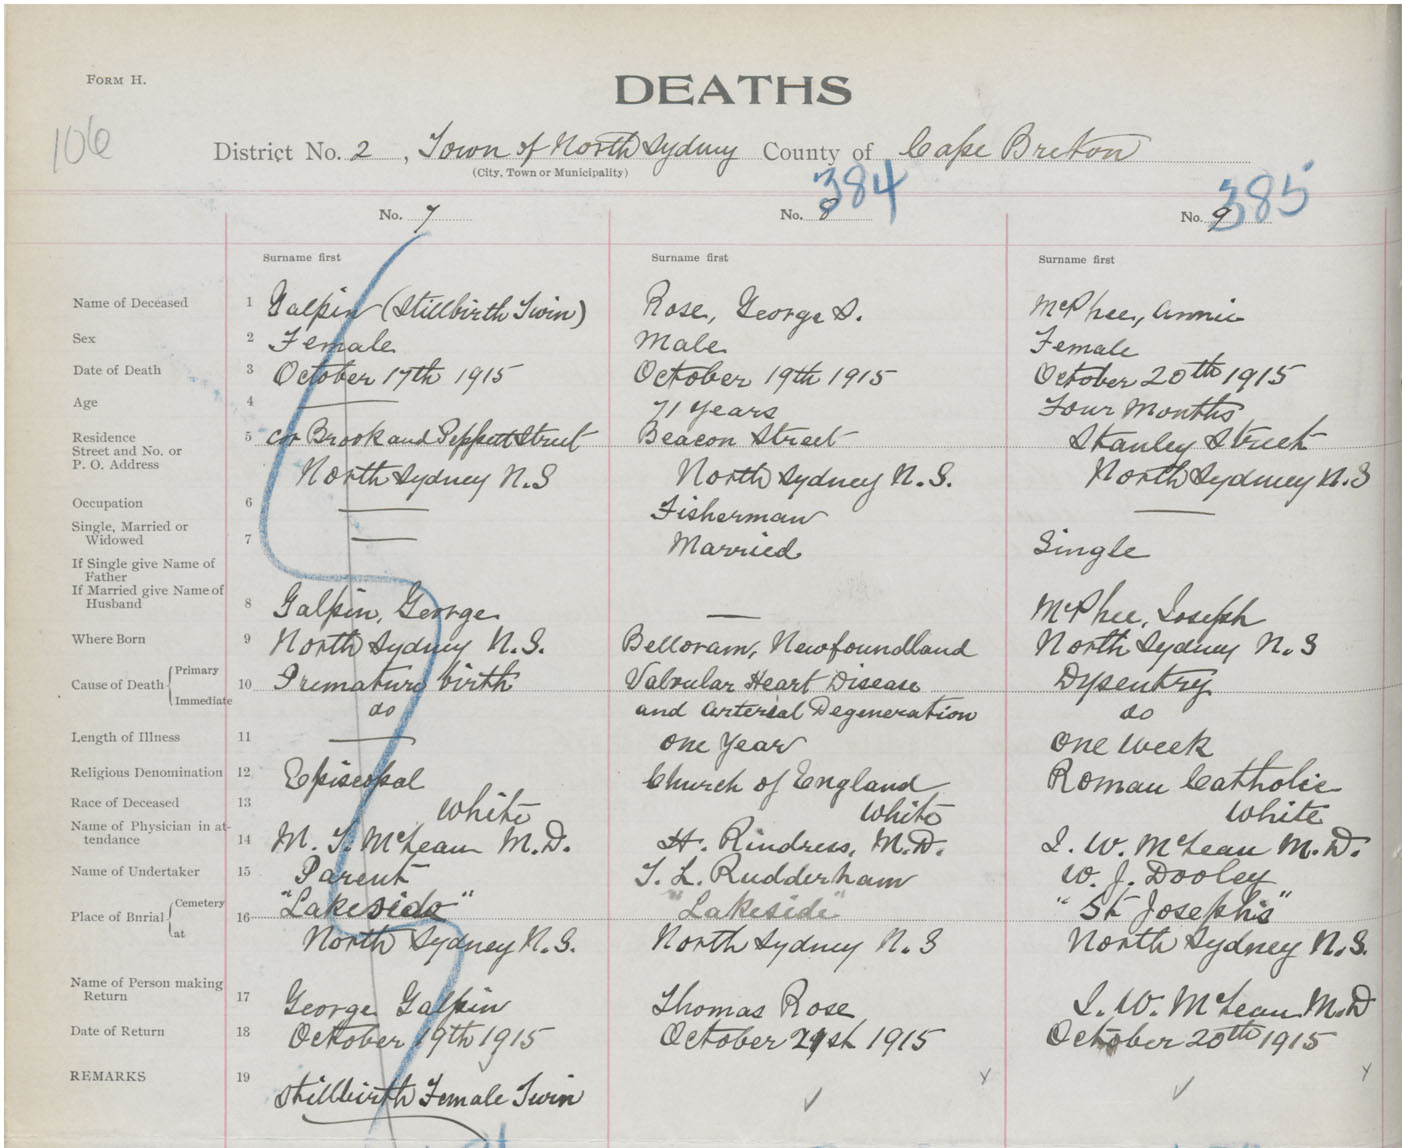 FORM H.
DEATHS
106
District No. 2, Town of North Sydney County of Cape Breton
(City, Town or Municipality)
384
385
No. 7 No. 8 No. 9
Surname first Surname first Surname first
Name of Deceased 1 Galpin (Stillbirth Twin) Rose, George S. McPhee, Annie
Sex 2 Female Male Female
Date of Death 3 October 17th 1915 October 19th 1915 October 20th 1915
Age 4 71 Years Four Months
Residence 5 cor Brook and Peppett Street Beacon Street Stanley Street
Street and No. or
P. O. Address North Sydney N.S North Sydney N.S. North Sydney N.S
Occupation 6 Fisherman
Single, Married or
Widowed 7 Married Single
If Single give Name of
Father
If Married give Name of
Husband 8 Galpin, George McPhee, Joseph
Where Born 9 North Sydney N.S. Belloram, Newfoundland North Sydney N.S
Cause of Death Primary 10 Premature birth Valvular Heart Disease Dysentry
Immediate do and Arterial Degeneration do
Length of Illness 11 one Year one week
Religious Denomination 12 Episcopal Church of England Roman Catholic
Race of Deceased 13 White White White
Name of Physician in at-
tendance 14 M. T. McLean M.D. H. Rindress, M.D. J. W. McLean M.D.
Name of Undertaker 15 Parent T. L. Rudderham W. J. Dooley
Place of Burial Cemetery 16 "Lakeside" "Lakeside" "St Joseph's"
at North Sydney N.S. North Sydney N.S North Sydney N.S.
Name of Person making
Return 17 George Galpin Thomas Rose J. W. McLean M.D
Date of Return 18 October 19th 1915 October 21st 1915 October 20th 1915
REMARKS 19 Stillbirth Female Twin